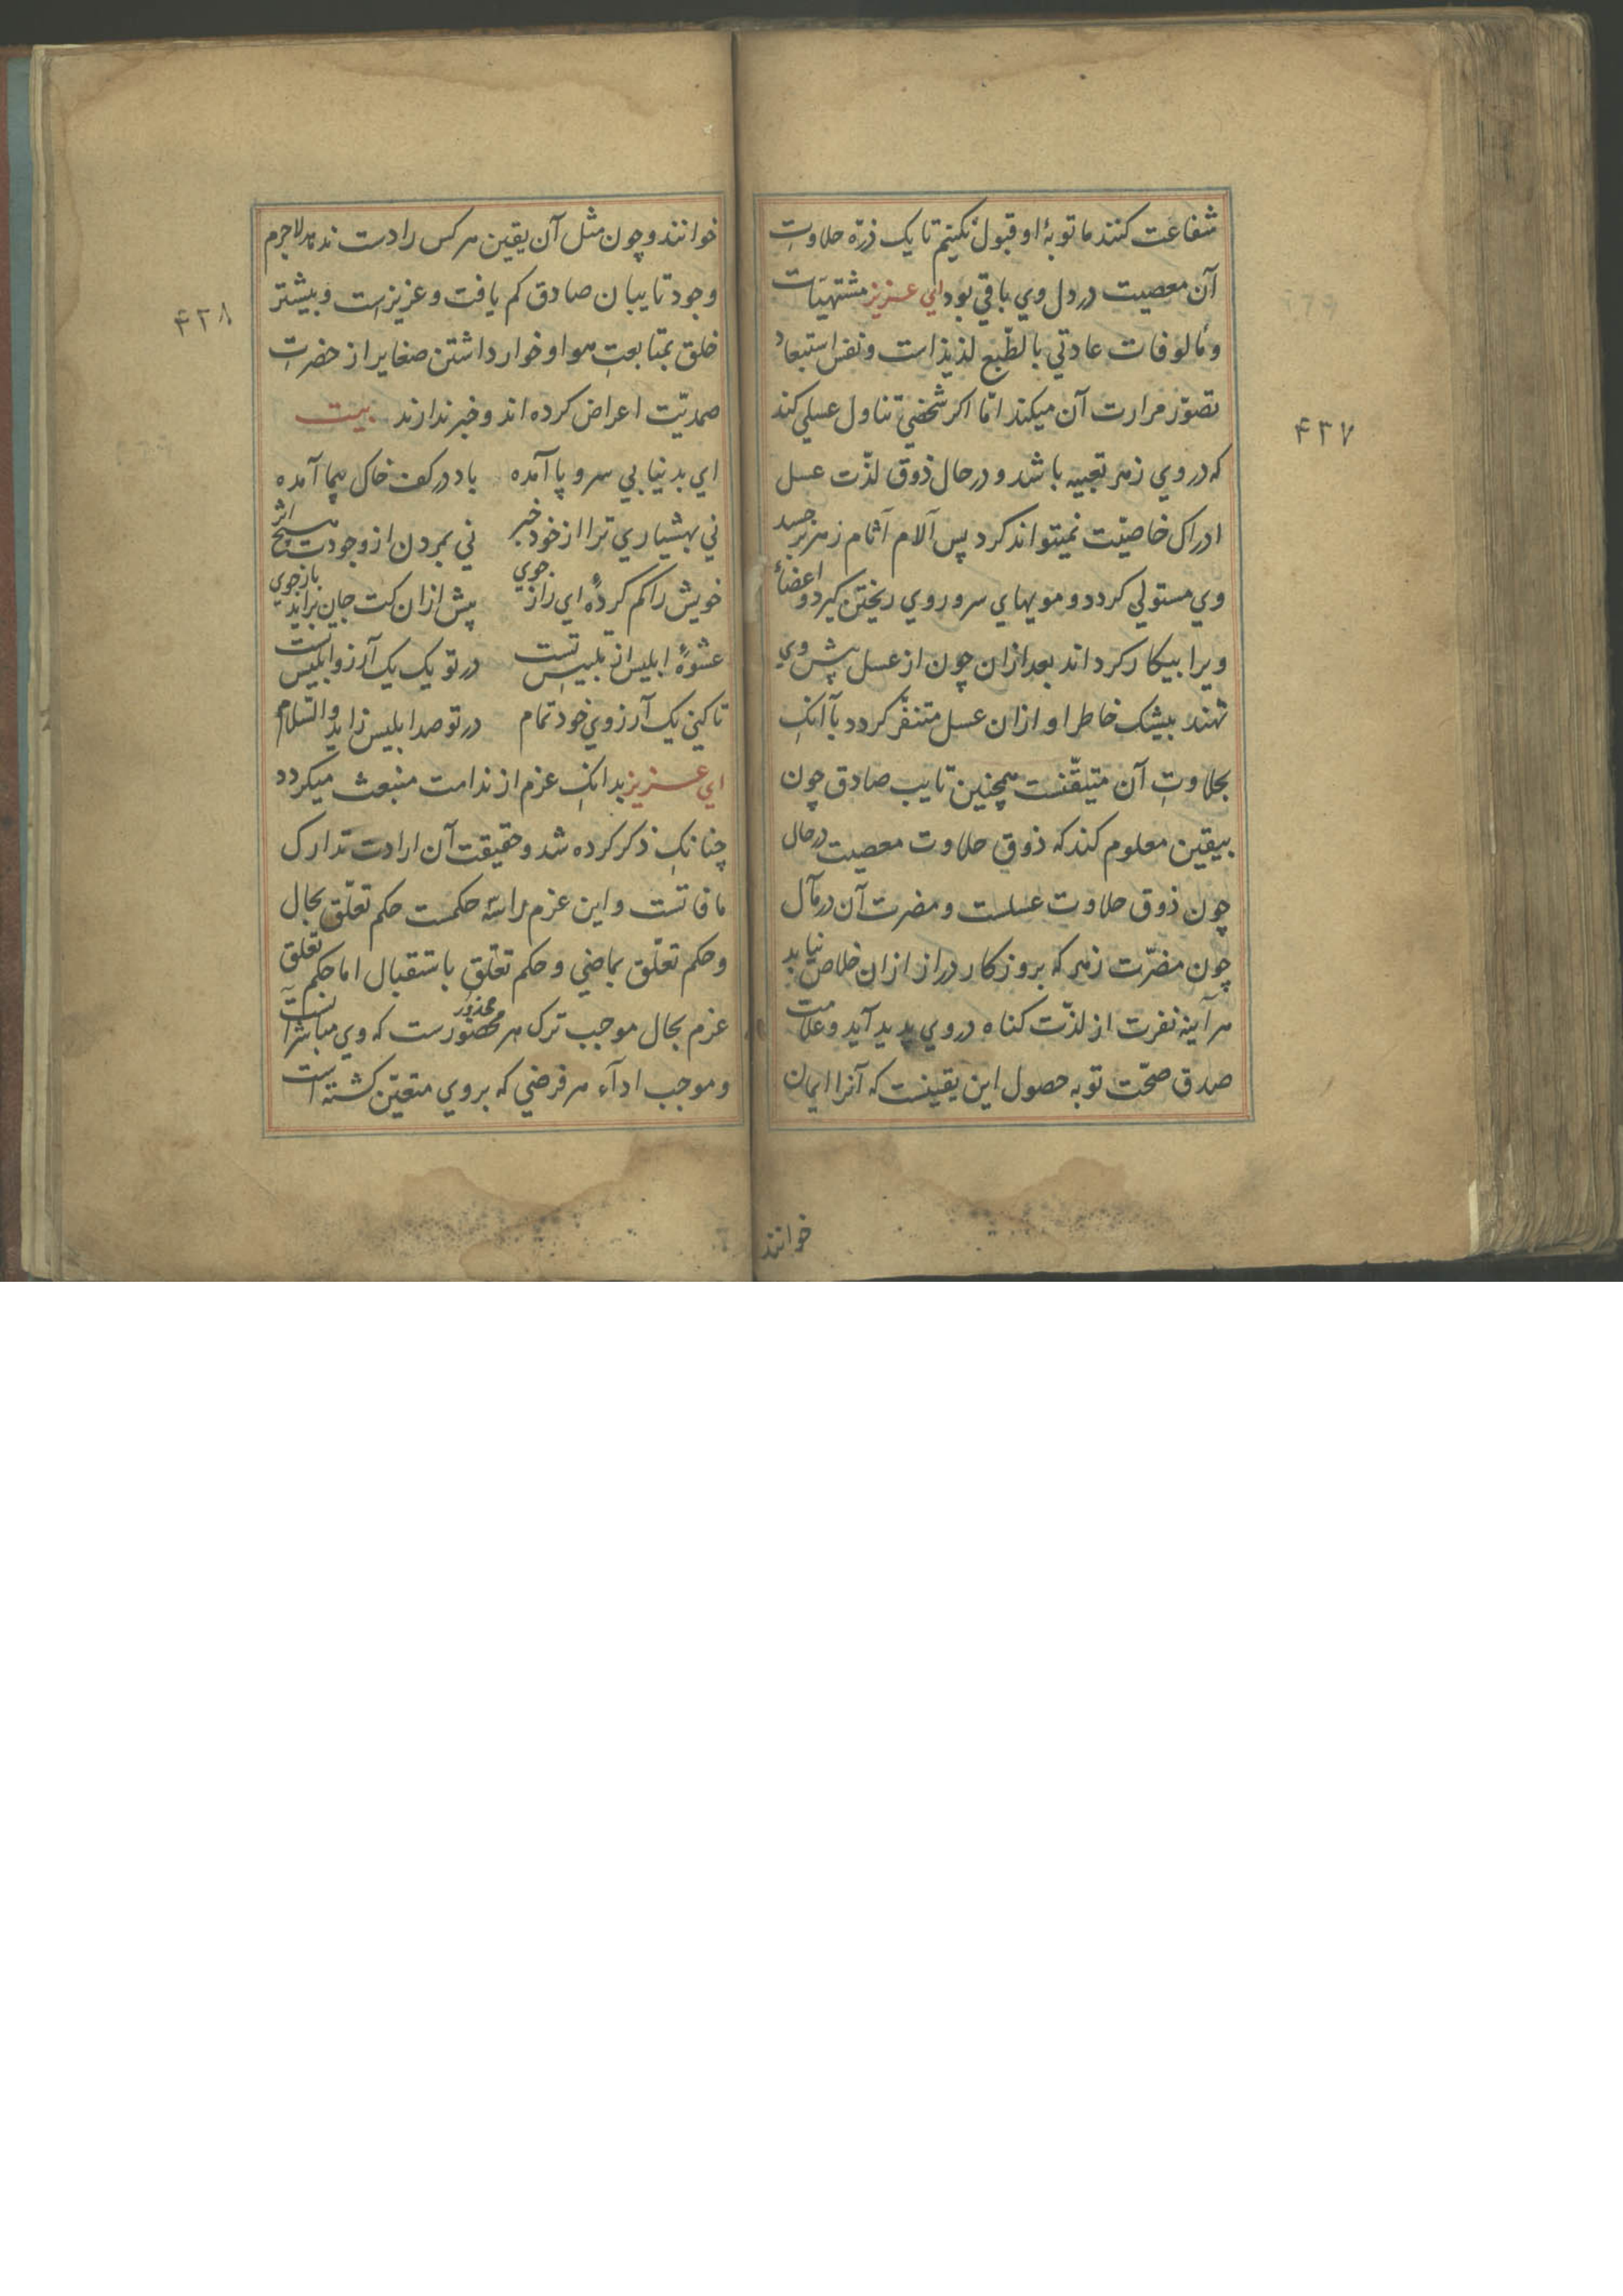 شفاعت کنند ما توبهٔ او قبول نکنیم تا یک ذرّه حلاوت
آن معصیت در دل وی باقی بود ای عزیز مشتهیات
و مألوفات عادتی بالطّبع لذیذ است و نفس استبعاد
تصوّر مرارت آن میکند امّا اکر شخصی تناول عسلی کند
که در وی زهر تعبیه باشد و در حال ذوق لذّت عسل
ادراک خاصیّت نمیتواند کرد پس آلام آثام زهر بر جسد
وی مستولی کردد و مویهای سر و روی ریختن کیرد و اعضاء
ویرا بیکار کرداند بعد ازان چون از عسل پیش وی
نهند بیشک خاطر او ازان عسل متنفّر کردد با آنک
بحلاوت آن متیقّنست همچنین تایب صادق چون
بیقین معلوم کند که ذوق حلاوت معصیت در حال
چون ذوق حلاوت عسلست و مضرت آن در مآل
چون مضرّت زهر که بروزکار دراز ازان خلاص نیابد
هر آینه نفرت از لذّت کناه در وی پدید آید و علامت
صدق صحّت توبه حصول این یقینست که آنرا ایمان
خوانند
۴۳۷
خوانند و چون مثل آن یقین هر کس را دست ندهد لاجرم
وجود تایبان صادق کم یافت و عزیزست و بیشتر
خلق بمتابعت هوا و خوار داشتن صغایر از حضرت
صمدیّت اعراض کرده اند و خبر ندارند بیت
ای بدنیا بی سر و پا آمده باد در کف خاک پیما آمده
نی بهشیاری ترا از خود خبر نی بمردن از وجودت هیچ اثر
خویش را کم کردهٔ ای راز جوی پیش ازان کت جان براید باز جوی
عشوهٔ ابلیس از تلبیس تست در تو یک یک آرزو ابلیس تست
تا کنی یک آرزوی خود تمام در تو صد ابلیس زاید والسّلام
ای عزیز بدانک عزم از ندامت منبعث میکردد
چنانک ذکر کرده شد و حقیقت آن ارادت تدارک
ما فاتست و این عزم را سه حکمست حکم تعلّق بحال
و حکم تعلّق بماضی و حکم تعلّق باستقبال اما حکم تعلق
عزم بحال موجب ترک هر محضورست که وی مباشر آنست
محذور
و موجب اداء هر فرضی که بر وی متعیّن کشته است
۴۳۸